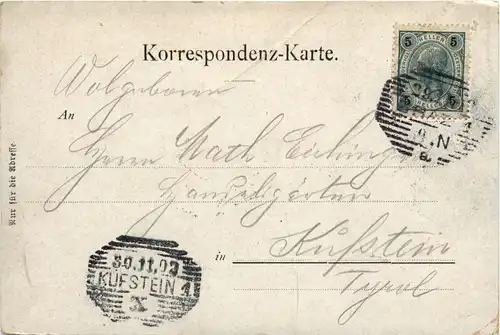 Korrespondenz-Karte.
5 HELLER 5
5 HELLER 5
Wolgeboren
An
Herrn Math
Handelsgärtner
in Kufstein
Tyrol
Nur für die Adresse.
30.11.02
KUFSTEIN 1